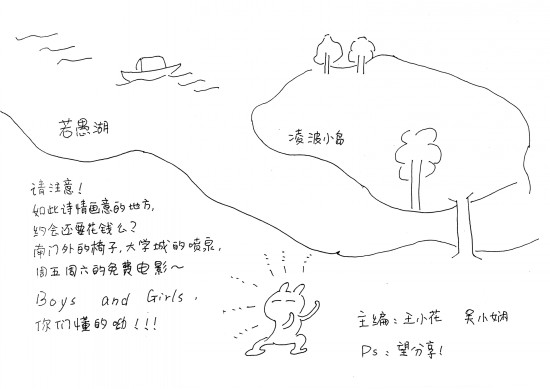 若愚湖
凌波小岛
请注意!
如此诗情画意的地方,
约会还要花钱么?
南门外的椅子,大学城的喷泉,
周五周六的免费电影~
Boys and Girls,
你们懂的呦!!!
主编:王小花 吴小娴
Ps:望分享!